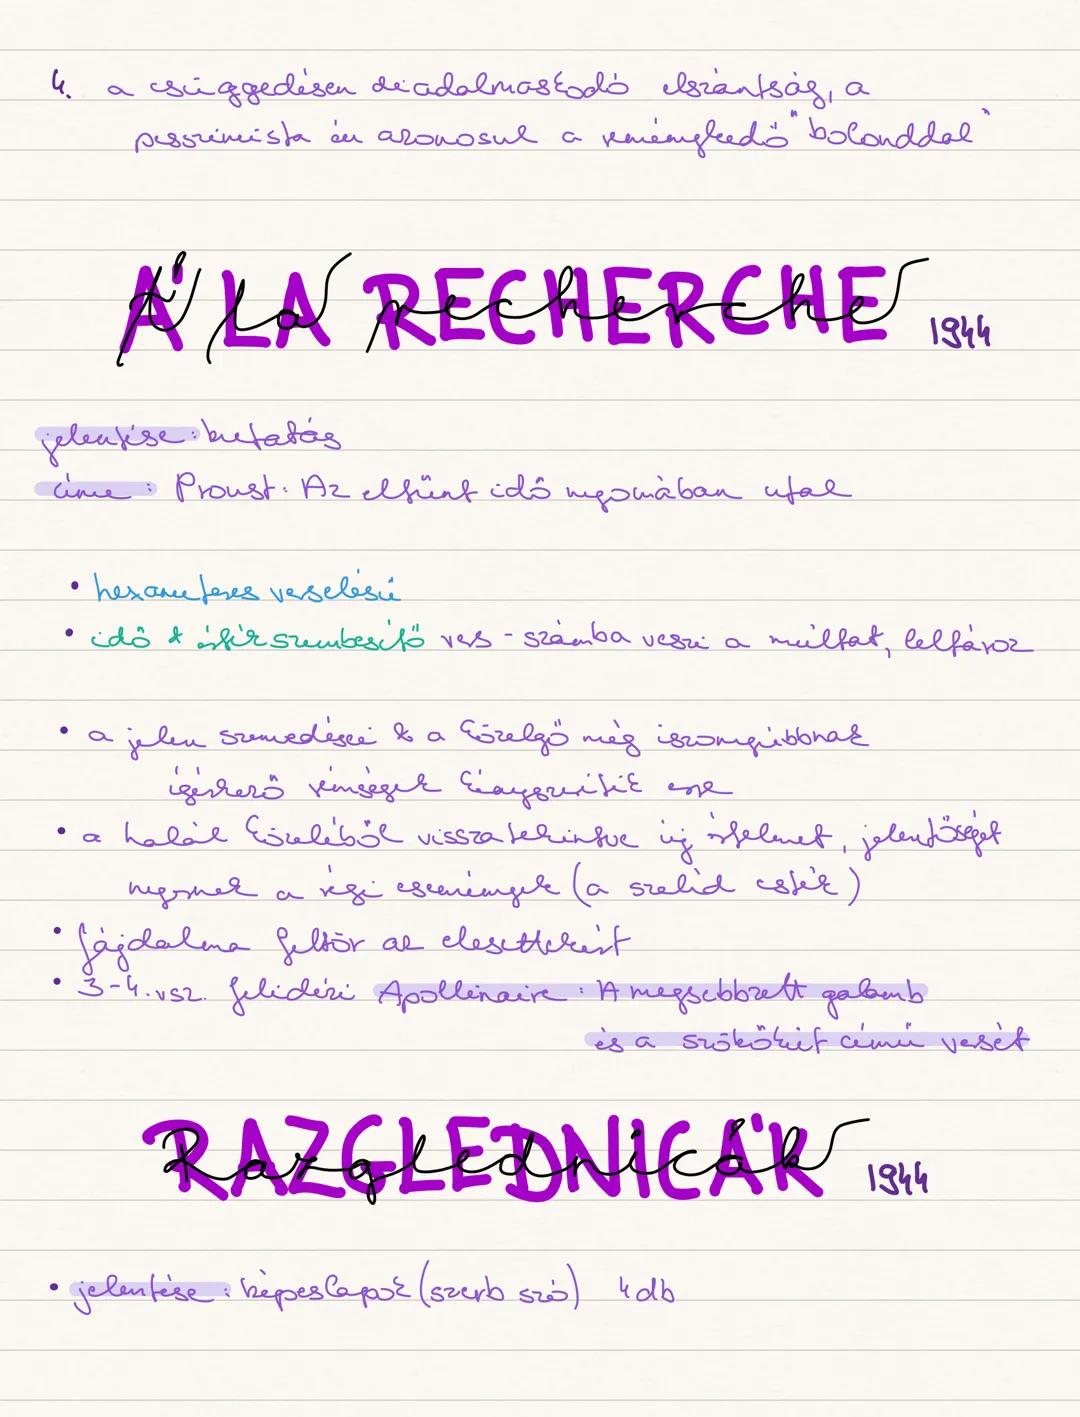 4. a csüggedésen diadalmaskodó elszántság, a
pesszimista én azonosul a reménykedő "bolonddal"
Á LA RECHERCHE 1944
jelentése: kutatás
címe: Proust: Az eltűnt idő nyomában utal
• hexameteres verselésű
• idő & értékszembesítő vers - számba veszi a múltat, leltároz
• a jelen szenvedései & a közelgő még iszonyúbbnak
ígérkező rémségek kényszerítik erre
• a halál közeléből visszatekintve új értelmet, jelentőséget
nyernek a régi események (a szelíd esték)
• fájdalma feltör az elesettekért
• 3-4. vsz. felidézi Apollinaire: A megsebbzett galamb
és a szökőkút című versét
RAZGLEDNICÁK 1944
• jelentése: képeslapok (szerb szó) 4 db